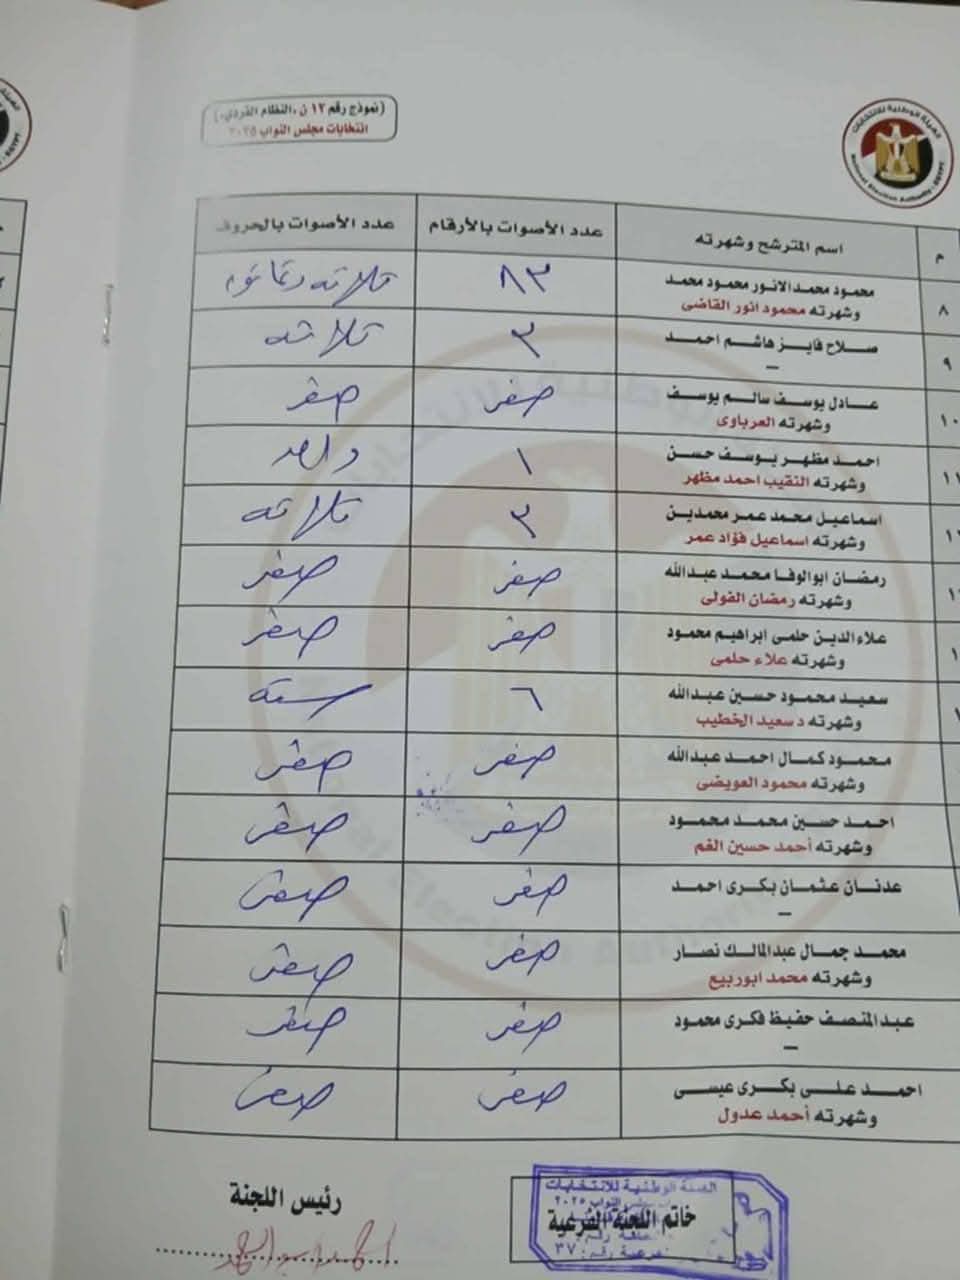 (نموذج رقم ١٢ ن ، النظام الفردي،)
انتخابات مجلس النواب ٢٠٢٥
الهيئة الوطنية للانتخابات
National Election Authority - EGYPT
م
اسم المترشح وشهرته
عدد الأصوات بالأرقام
عدد الأصوات بالحروف
٨
محمود محمد الانور محمود محمد
وشهرته محمود انور القاضى
٨٣
ثلاثه وثمانون
٩
صلاح فايز هاشم احمد
–
٣
ثلاثه
١٠
عادل يوسف سالم يوسف
وشهرته العرباوى
صفر
صفر
١١
احمد مظهر يوسف حسن
وشهرته النقيب احمد مظهر
١
واحد
اسماعيل محمد عمر محمدين
وشهرته اسماعيل فؤاد عمر
٣
ثلاثه
رمضان ابوالوفا محمد عبدالله
وشهرته رمضان الفولى
صفر
صفر
علاء الدين حلمى ابراهيم محمود
وشهرته علاء حلمى
صفر
صفر
سعيد محمود حسين عبدالله
وشهرته د سعيد الخطيب
٦
سته
محمود كمال احمد عبدالله
وشهرته محمود العويضى
صفر
صفر
احمد حسين محمد محمود
وشهرته أحمد حسين الفم
صفر
صفر
عدنان عثمان بكرى احمد
–
صفر
صفر
محمد جمال عبدالمالك نصار
وشهرته محمد ابوربيع
صفر
صفر
عبدالمنصف حفيظ فكرى محمود
–
صفر
صفر
احمد على بكرى عيسى
وشهرته أحمد عدول
صفر
صفر
خاتم اللجنة الفرعية
الهيئة الوطنية للانتخابات
النواب ٢٠٢٥
فرعية رقم: ٣٧
رئيس اللجنة